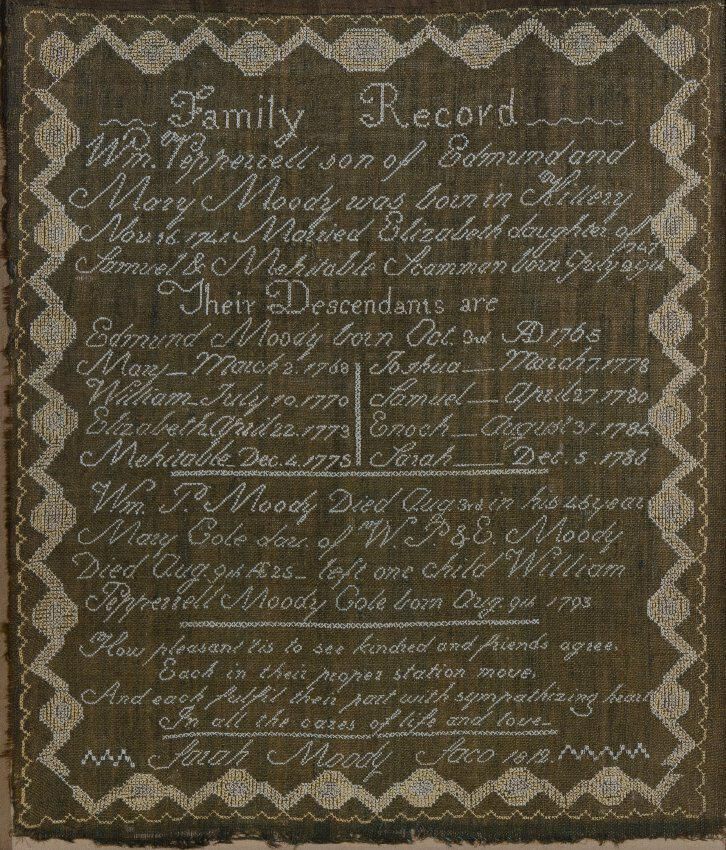 Family Record
Wm. Pepperrell son of Edmund and
Mary Moody was born in Kittery
Nov. 16. Married Elizabeth daughter of
Samuel & Mehitable Scamman born July 29th 1747
Their Descendants are
Edmund Moody born Oct. 3rd AD 1765
Mary March 2. 1768 Joshua March 7. 1778
William July 10. 1770 Samuel April 27. 1780
Elizabeth April 22. 1773 Enoch August 31. 1784
Mehitable Dec. 4. 1775 Sarah Dec. 5. 1786
Wm. P. Moody Died Aug 3rd in his 46 year
Mary Cole dau. of Wm P. & E. Moody
Died Aug. 9th Æ 25 left one child William
Pepprerell Moody Cole born Aug. 9th 1793
How pleasant tis to see kindred and friends agree.
Each in their proper station move.
And each fulfil their part with sympathizing heart
In all the cares of life and love
Sarah Moody Saco 1812.